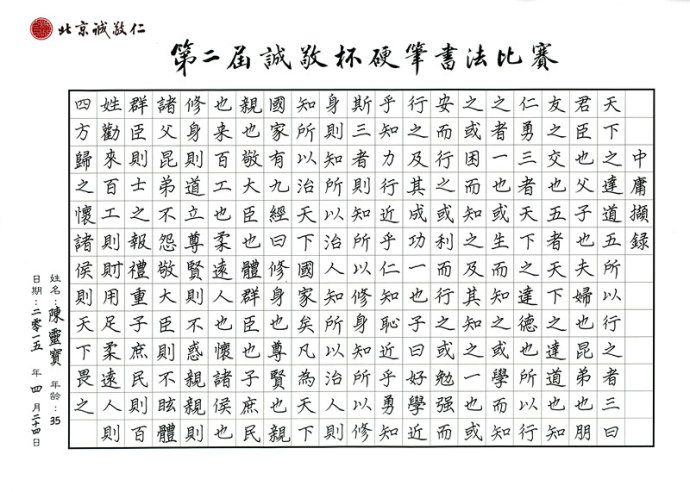 北京诚敬仁
第二届誠敬杯硬筆書法比賽
中庸擷録
天下之達道五所以行之者三曰
君臣也父子也夫婦也昆弟也朋
友之交也五者天下之達道也知
仁勇三者天下之達德也所以行
之者一也或生而知之或學而知
之或困而知之及其知之一也或
安而行之或利而行之或勉强而
行之及其成功一也子曰好學近
乎知力行近乎仁知恥近乎勇知
斯三者則知所以修身知所以修
身則知所以治人知所以治人則
知所以治天下國家矣凡為天下
國家有九經曰修身也尊賢也親
親也敬大臣也體群臣也子庶民
也來百工也柔遠人也懷諸侯也
修身則道立尊賢則不惑親親則
諸父昆弟不怨敬大臣則不眩體
群臣則士之報禮重子庶民則百
姓勸來百工則財用足柔遠人則
四方歸之懷諸侯則天下畏之
姓名：陳靈寶 年龄：35
日期：二零一五 年 四 月 二十四 日